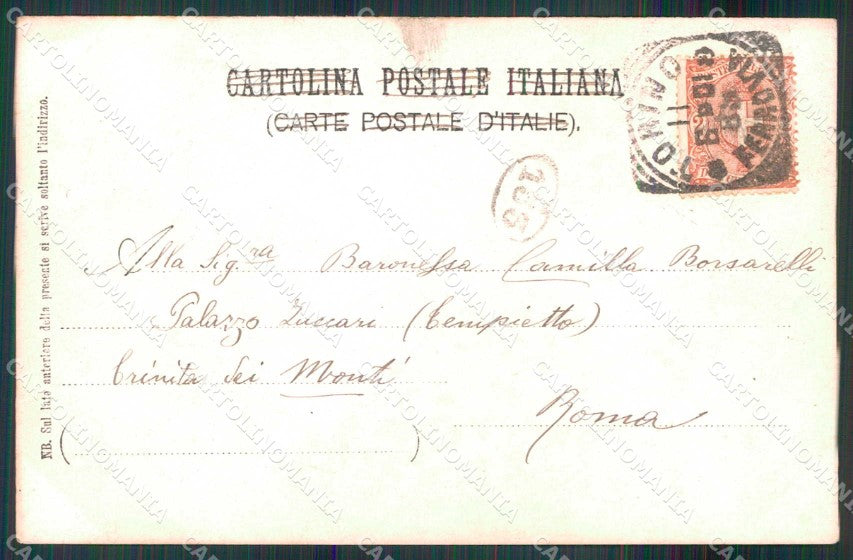 CARTOLINA POSTALE ITALIANA
(CARTE POSTALE D'ITALIE).
NB. Sul lato anteriore della presente si scrive soltanto l'indirizzo.
TORINO
FERROVIA
185
Alla Sig.ra Baronessa Camilla Borsarelli
Palazzo Zuccari (Tempietto)
Trinità dei Monti
Roma
CARTOLINOMANIA